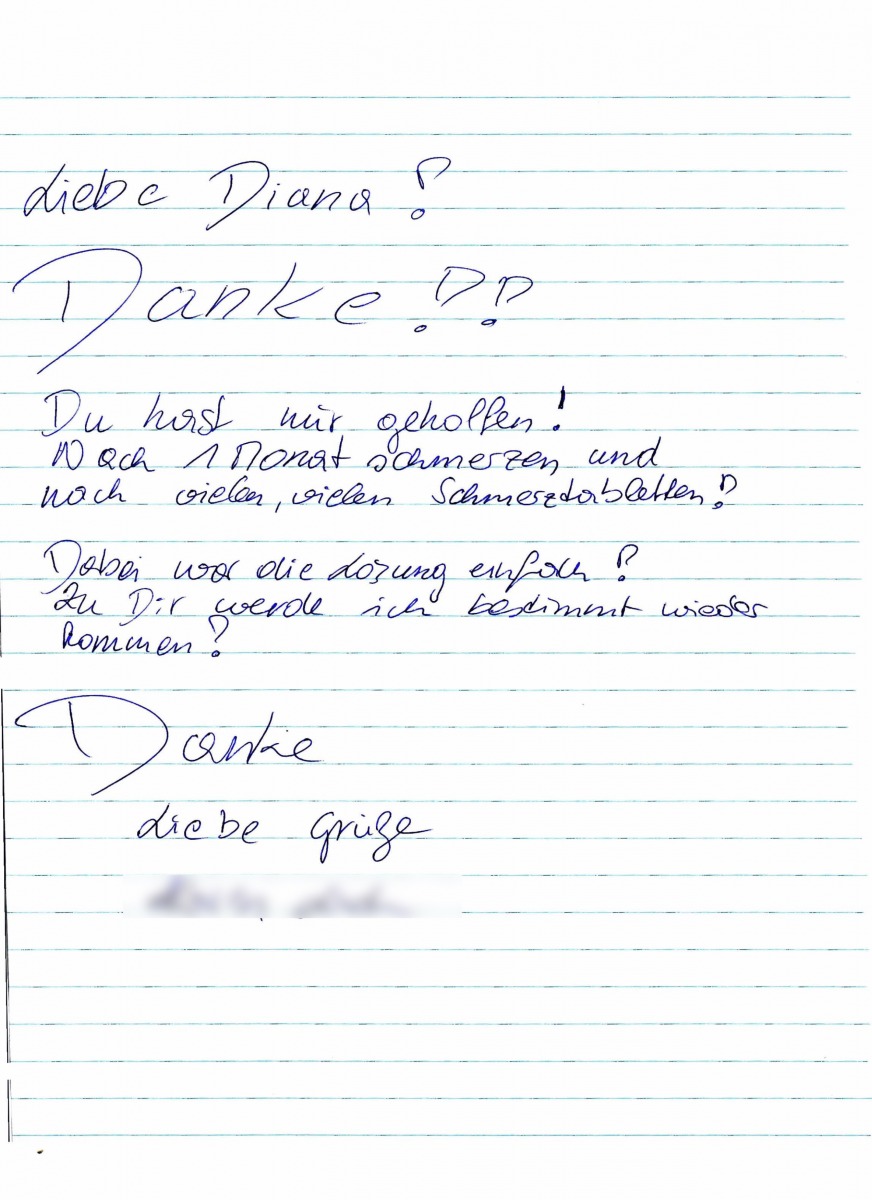 Liebe Diana!
Danke!!
Du hast mir geholfen!
Nach 1 Monat schmerzen und
nach vielen, vielen Schmerztabletten!
Dabei war die Lözung einfach!
Zu Dir werde ich bestimmt wieder
kommen!
Danke
Liebe Grüße